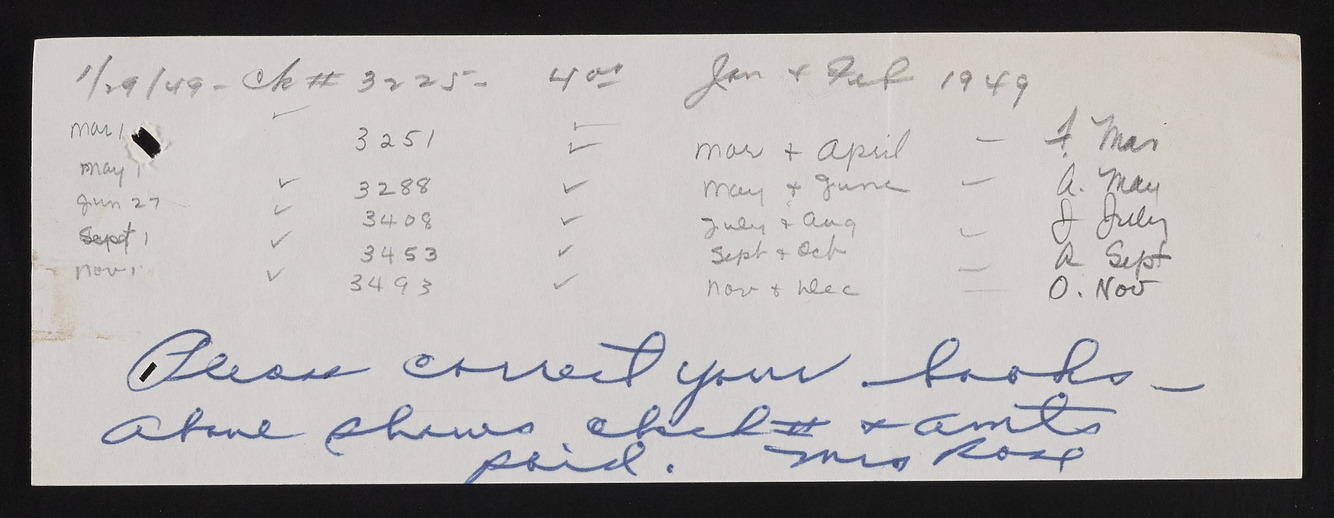 1/29/49 - Ck # 3225 - 4 00 Jan + Feb 1949
mar 1 ✓ 3251 ✓ mar + April - F. Mar
may 1 ✓ 3288 ✓ may + June - A. May
Jun 27 ✓ 3408 ✓ July + Aug - J July
Sept 1 ✓ 3453 ✓ Sept + Oct - A Sept
nov 1 ✓ 3493 ✓ nov + Dec - O. Nov
Please correct your books -
Above shows check # + amts
paid. Mrs Rose